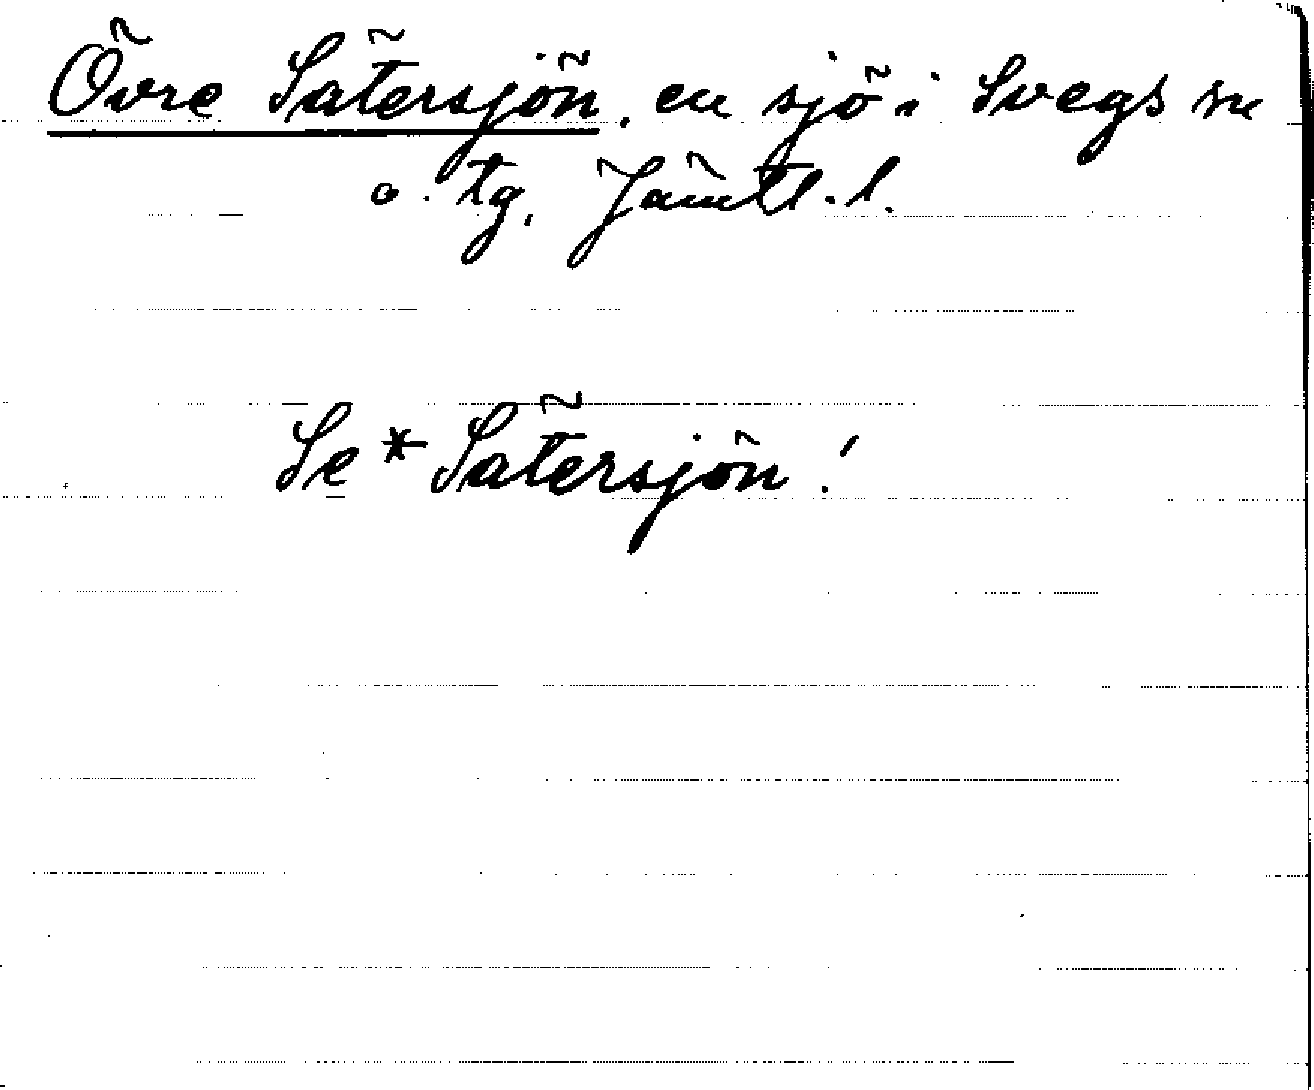 Övre Sätersjön, en sjö i Svegs sn
o. tg, Jämtl. l.
Se * Sätersjön!